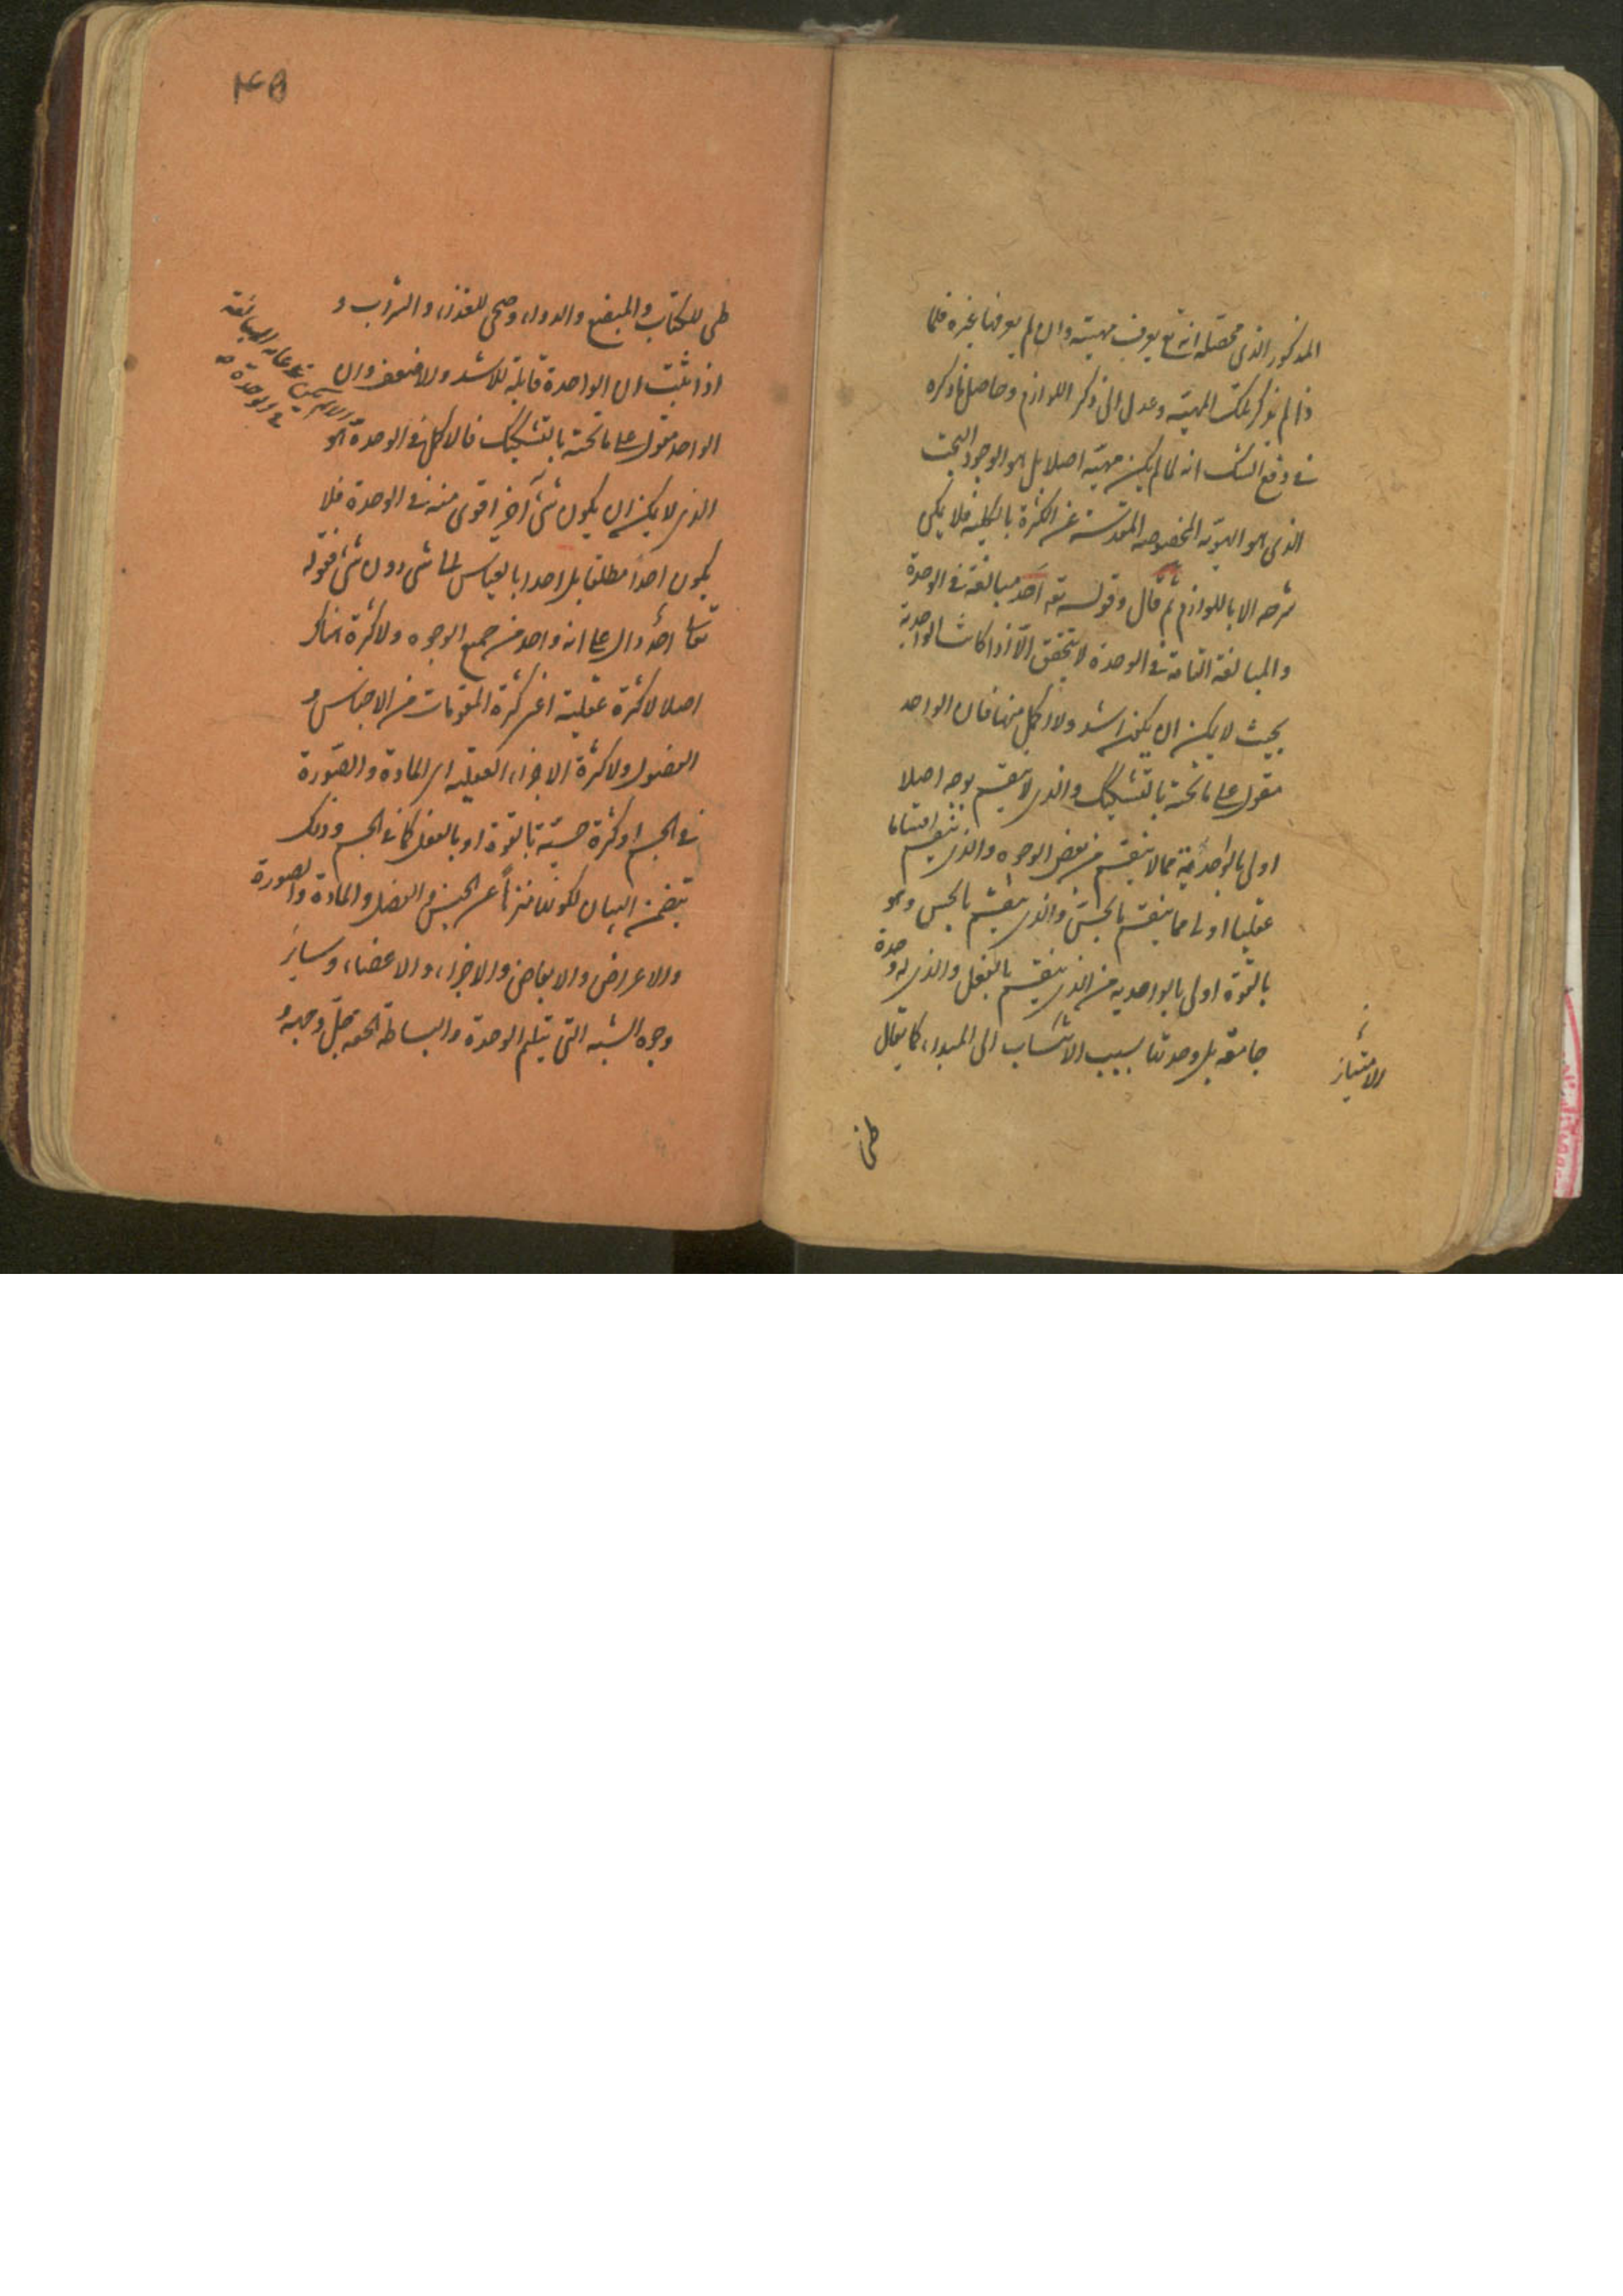 المذكور الذى محصله انه تع يعرف مهيته وان لم يعرفها غيره فلما
ذا لم يذكر تلك المهيته وعدل الى ذكر اللوازم وحاصل ما ذكره
فى دفع الشك انه لما لم يكن مهيته اصلا بل هو الوجود البحت
الذى هو الهويته المخصوصه المقدسته عن الكثرة بالكليه فلا يمكن
شرحه الا باللوازم ثم قال وقوله تع احد مبالغة فى الوحدة
والمبالغة التامة فى الوحدة لا يتحقق الا اذا كانت الواحدية
بحيث لا يمكن ان يكون اشد ولا اكمل منها فان الواحد
مقول على ما تحته بالتشكيك والذى لا ينقسم بوجه اصلا
اولى بالواحدية مما لا ينقسم من بعض الوجوه والذى ينقسم انقساما
عقليا اولى مما ينقسم بالحس والذى ينقسم بالحس وهو
بالقوة اولى بالواحديه من الذى ينقسم بالفعل والذى له وحدة
جامعة بل وحدتها بسبب الانتساب الى المبدا، كما يقال
الامتياز
طبى
طبى للكتاب والمبضع والدوا، وصحى للغذا، والشراب و
اذا ثبت ان الواحدة قابلة للاشد والاضعف وان
الواحد مقول على ما تحته بالتشكيك فالاكمل فى الوحدة هو
الذى لا يمكن ان يكون شئ آخر اقوى منه فى الوحدة فلا
يكون احدا مطلقا بل احدا بالقياس الى شئ دون شئ فقوله
تعالى احد دال على انه واحد من جميع الوجوه ولا كثرة هناك
اصلا لا كثرة عقلية اعنى كثرة المقومات من الاجناس و
الفصول ولا كثرة الاجزا، العقليه اى المادة والصورة
فى الجسم او كثرة حسيته بالقوة او بالفعل كما فى الجسم وذلك
يتضمن البيان لكونه منزهاً عن الجنس و الفصل و المادة والصورة
والاعراض والابعاض والاجزا، والاعضا، وساير
وجوه الشبه التى يثلم الوحدة والبساطة الحقه جل وجهه و
والا لم يكن فى غايه المبالغة
فى الوحدة